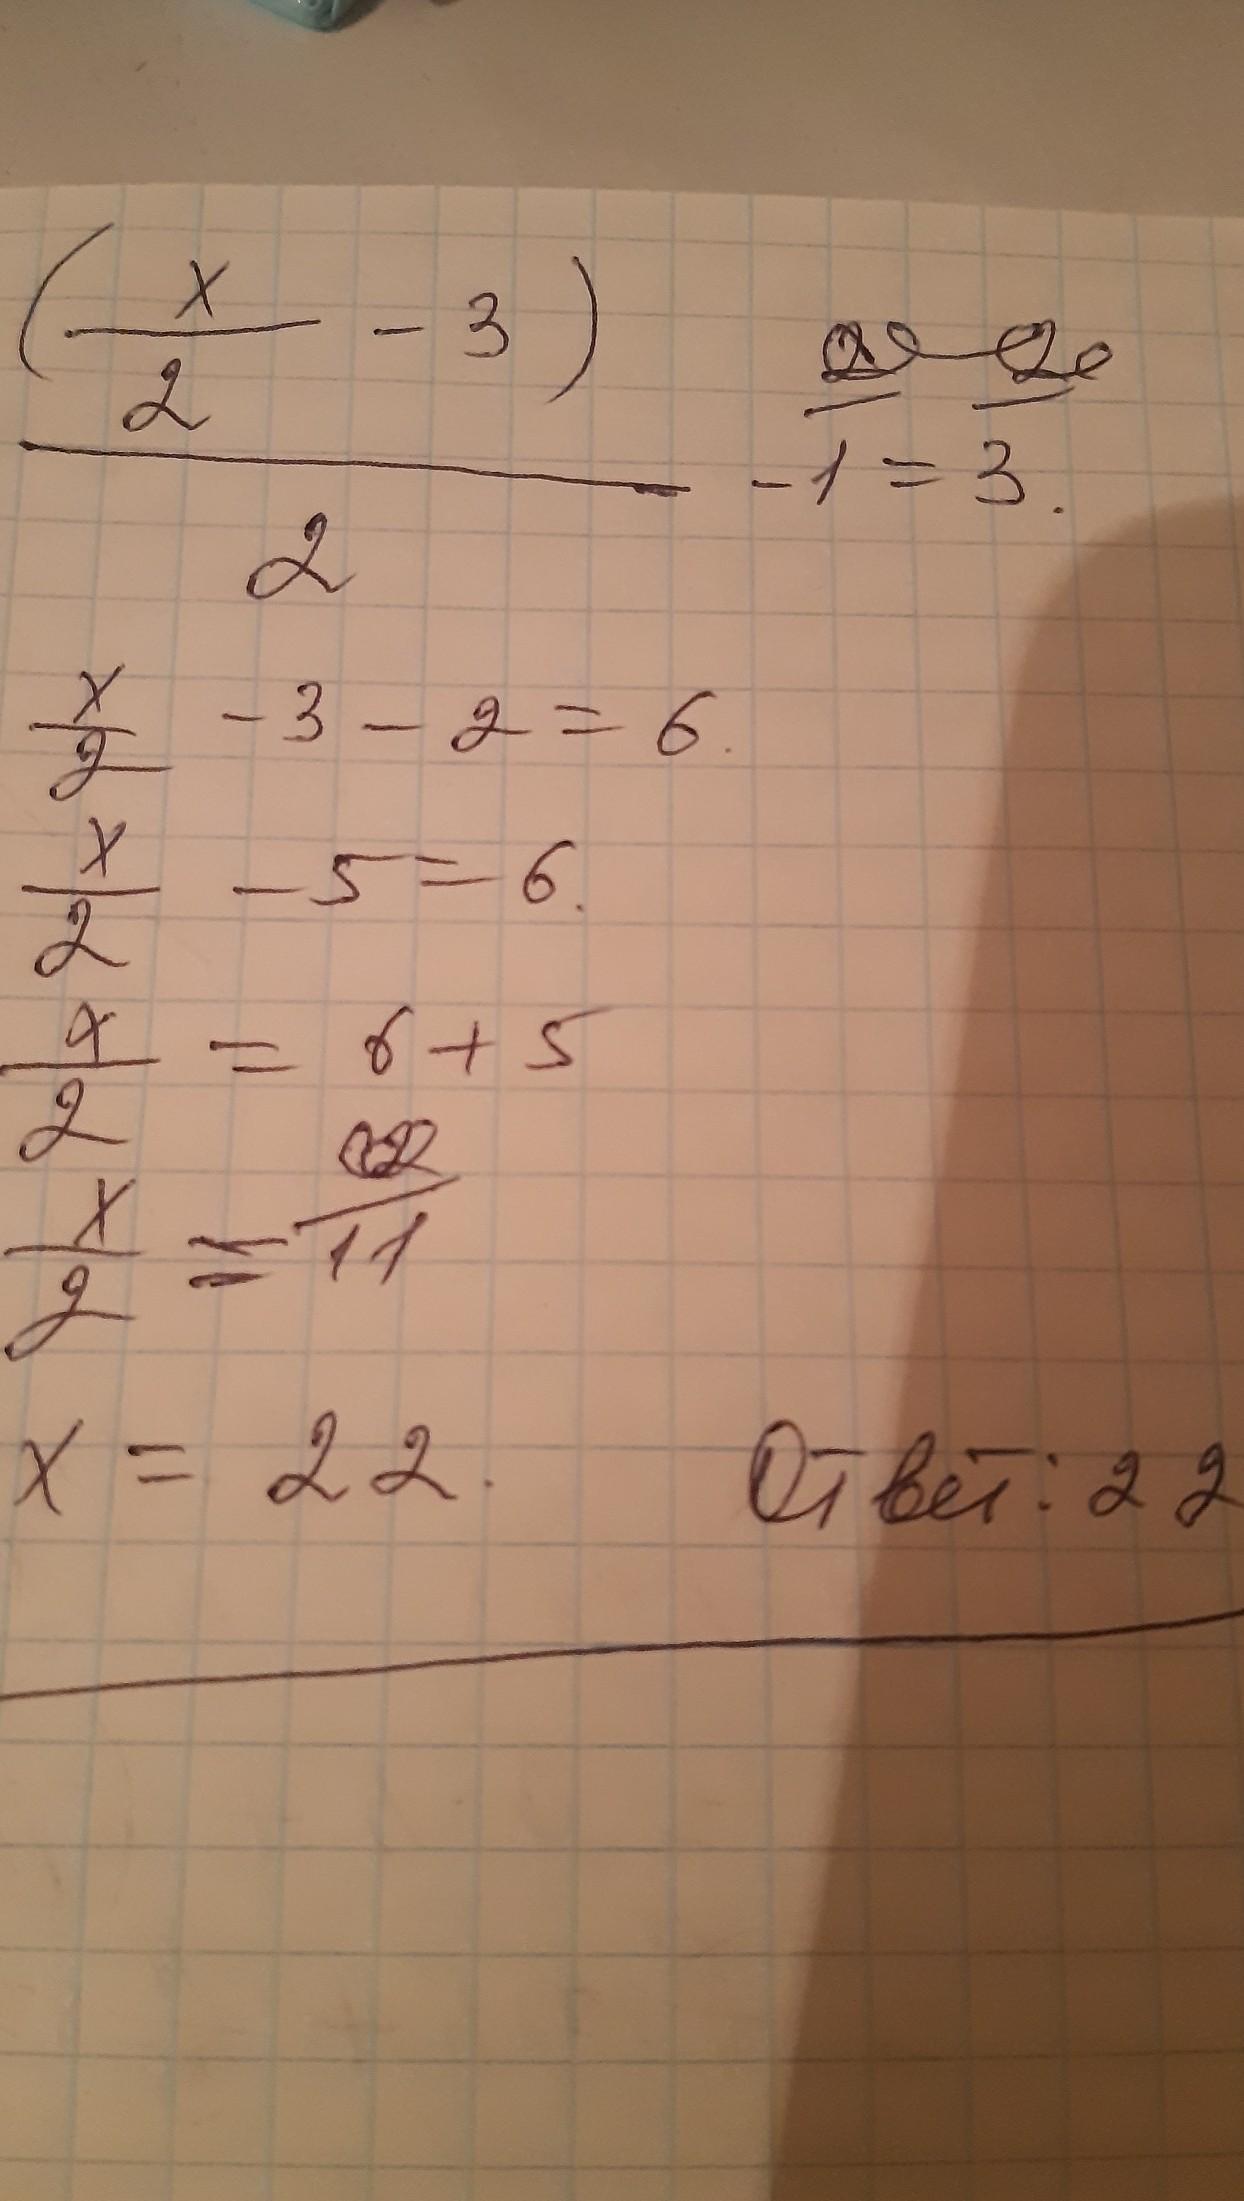 (x/2 - 3)/2 - 1 = 3.
x/2 - 3 - 2 = 6.
x/2 - 5 = 6.
x/2 = 6 + 5
x/2 = 11
x = 22. Ответ: 22